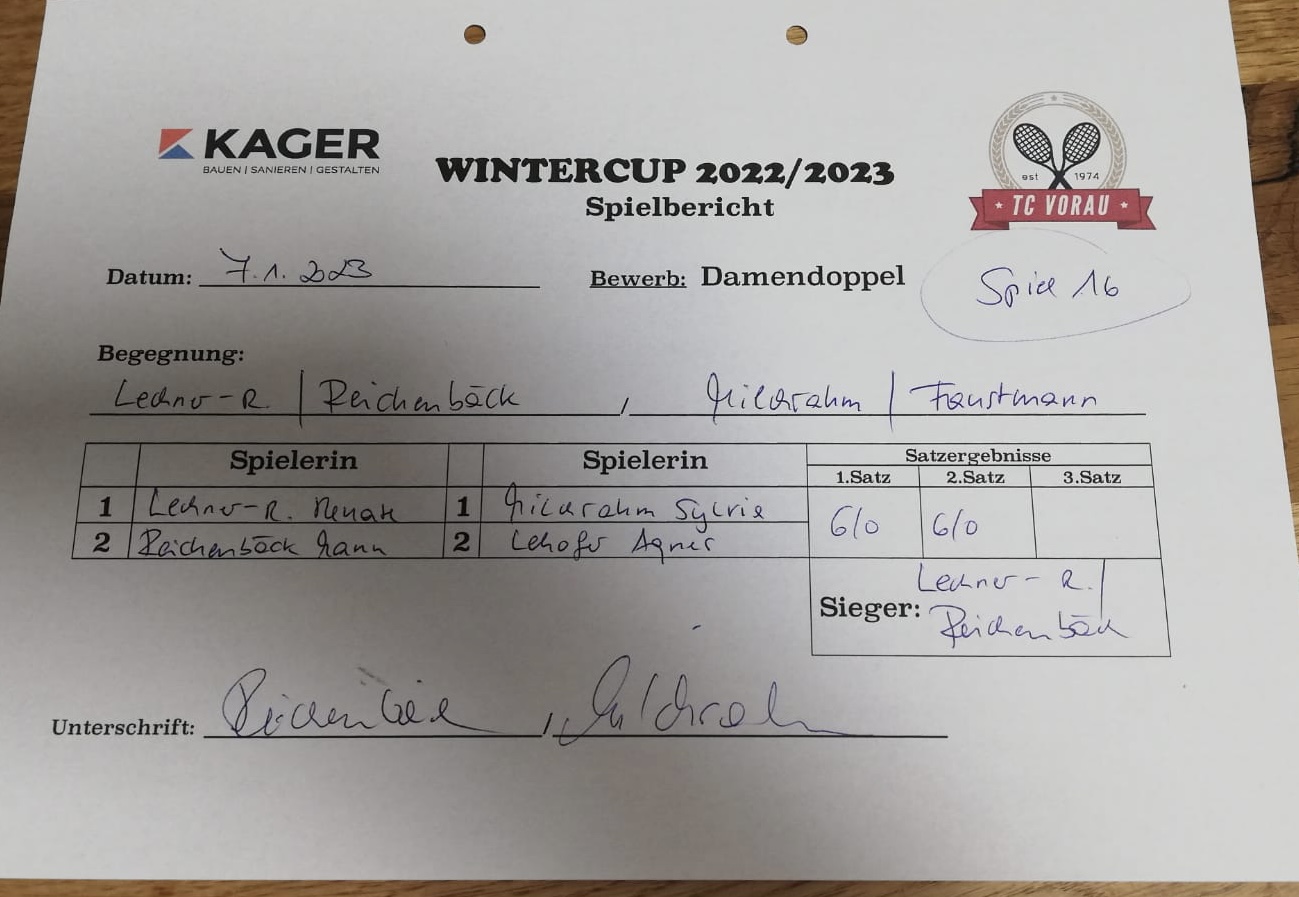 KAGER
BAUEN | SANIEREN | GESTALTEN
WINTERCUP 2022/2023
Spielbericht
est 1974
★ TC VORAU ★
Datum: 7.1.2023
Bewerb: Damendoppel
Spiel 16
Begegnung:
Lechner-R. | Reichenbäck / Mildrahm | Faustmann
Spielerin Spielerin Satzergebnisse
1.Satz 2.Satz 3.Satz
1 Lechner-R. Renate 1 Mildrahm Sylvia 6/0 6/0
2 Reichenbäck 2 Lehofer Agnes
Sieger: Lechner-R. |
Reichenbäck
Unterschrift: Reichenbäck / Mildrahm